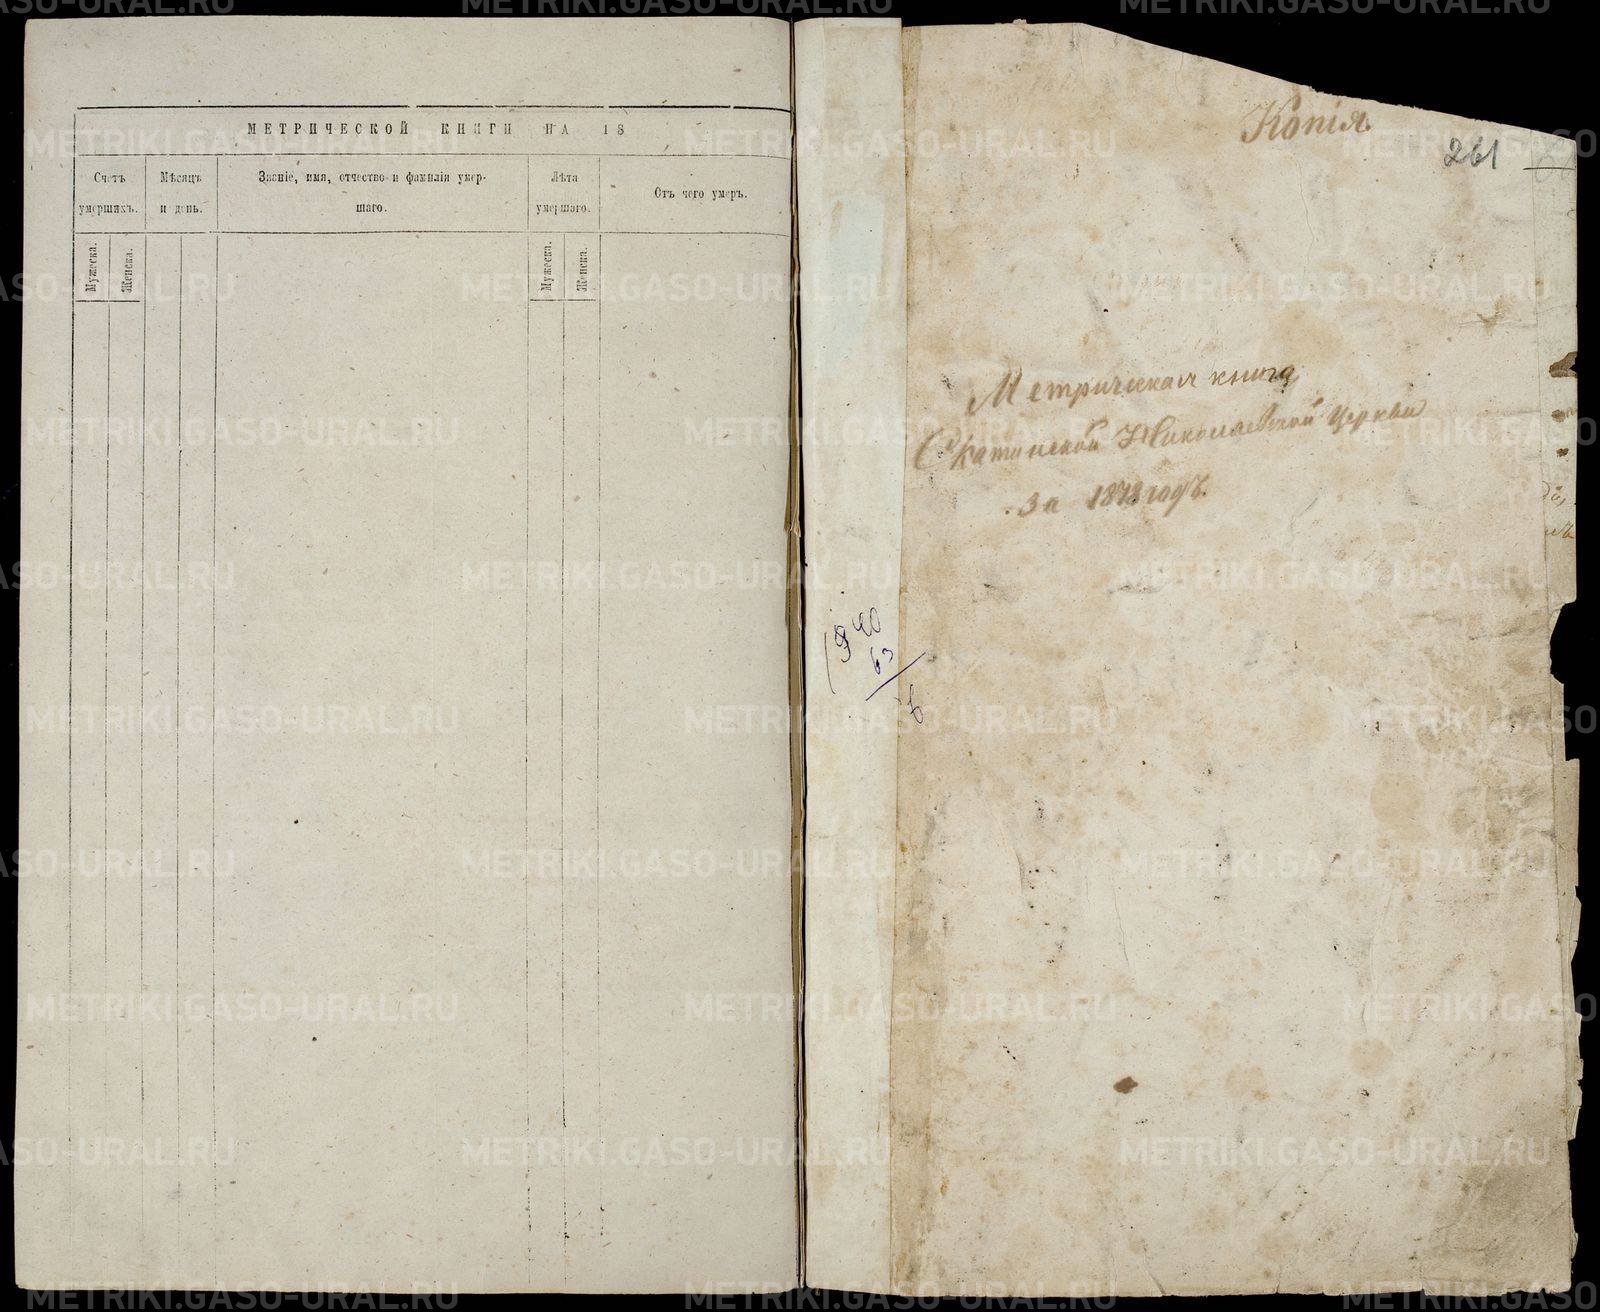 МЕТРИЧЕСКОЙ КНИГИ НА 18
Счетъ умершихъ.
Мѣсяцъ и день.
Званіе, имя, отчество и фамилія умершаго.
Лѣта умершаго.
Отъ чего умеръ.
Мужеска.
Женска.
Мужеска.
Женска.
Копія.
261
Метрическая книга
Скатинской Николаевской церкви
За 1873 годъ.
63
METRIKI.GASO-URAL.RU